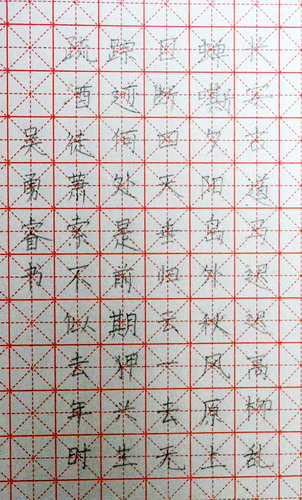 长安古道马迟迟高柳乱
蝉嘶夕阳岛外秋风原上
目断四天垂归云一去无
踪迹何处是前期狎兴生
疏酒徒萧索不似去年时
吴勇睿书